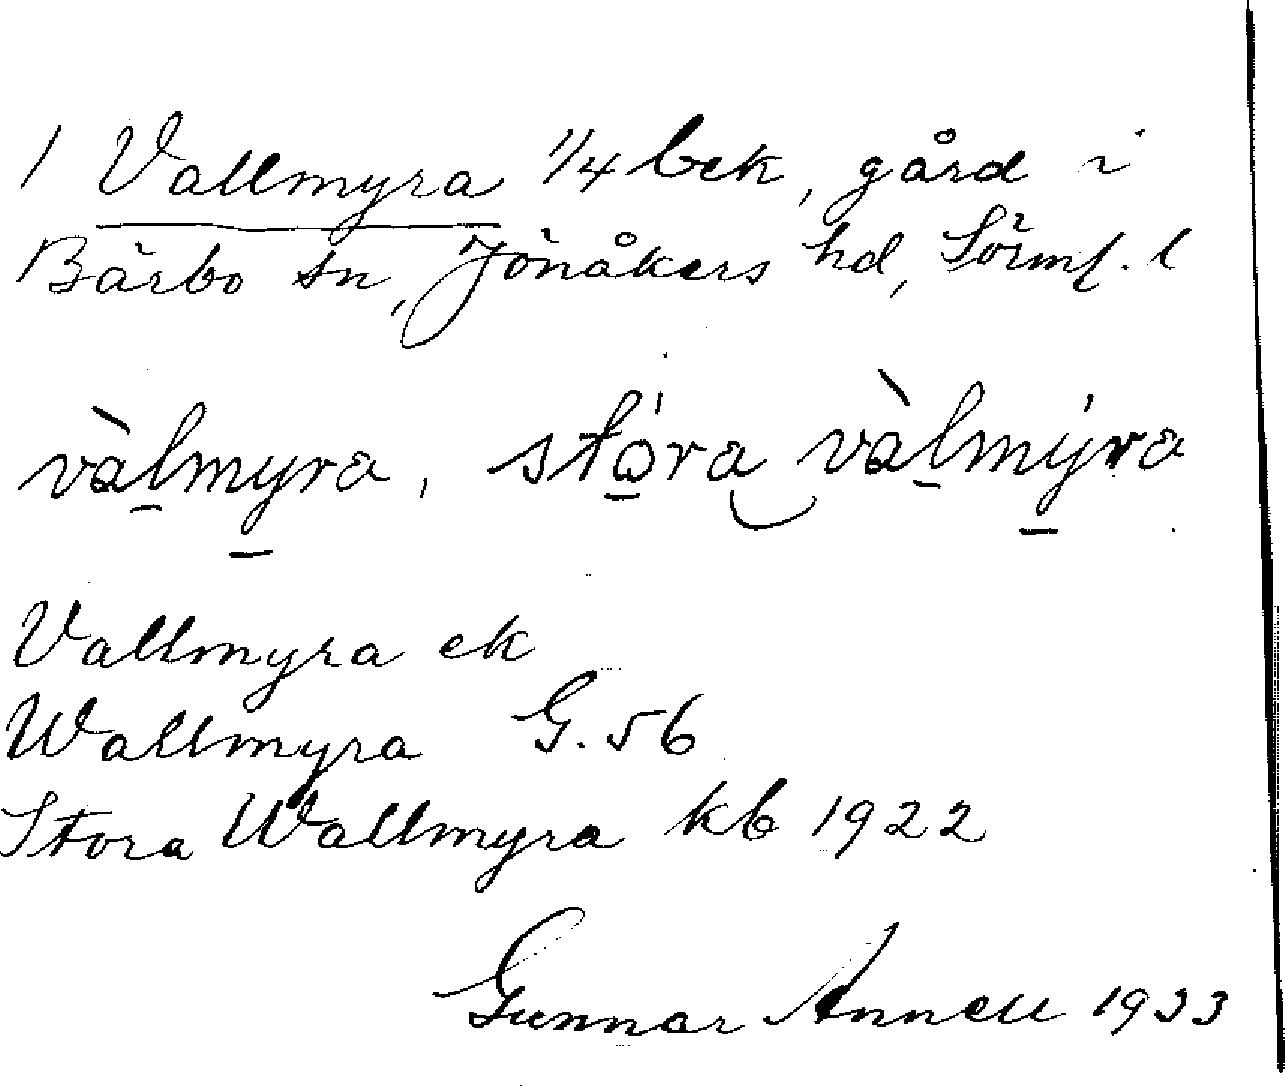 1 Vallmyra 1/4 bek, gård i
Bärbo sn, Jönåkers hd, Sörml. l
vàlmyra, stóra vàlmýra
Vallmyra ek
Wallmyra G. 56
Stora Wallmyra kb 1922
Gunnar Annell 1933